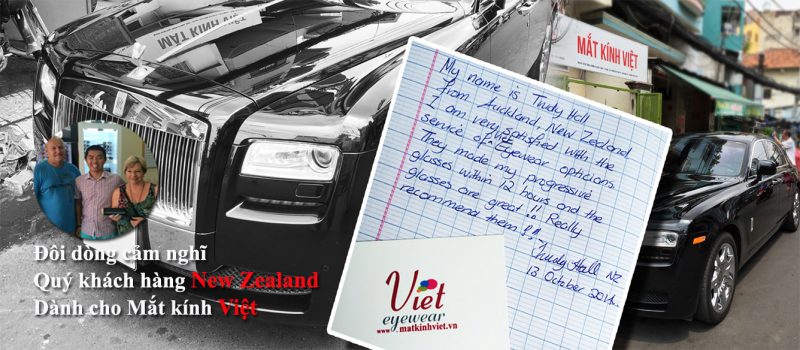 MẮT KÍNH VIỆT
My name is Trudy Hall
from Auckland, New Zealand
I am very satisfied with the
service of Viet Eyewear opticians.
They made my progressive
glasses within 12 hours and the
glasses are great!! Really
recommend them!!
Trudy Hall NZ
13 October 2014.
Viet
eyewear
www.matkinhviet.vn
Đôi dòng cảm nghĩ
Quý khách hàng New Zealand
Dành cho Mắt kính Việt